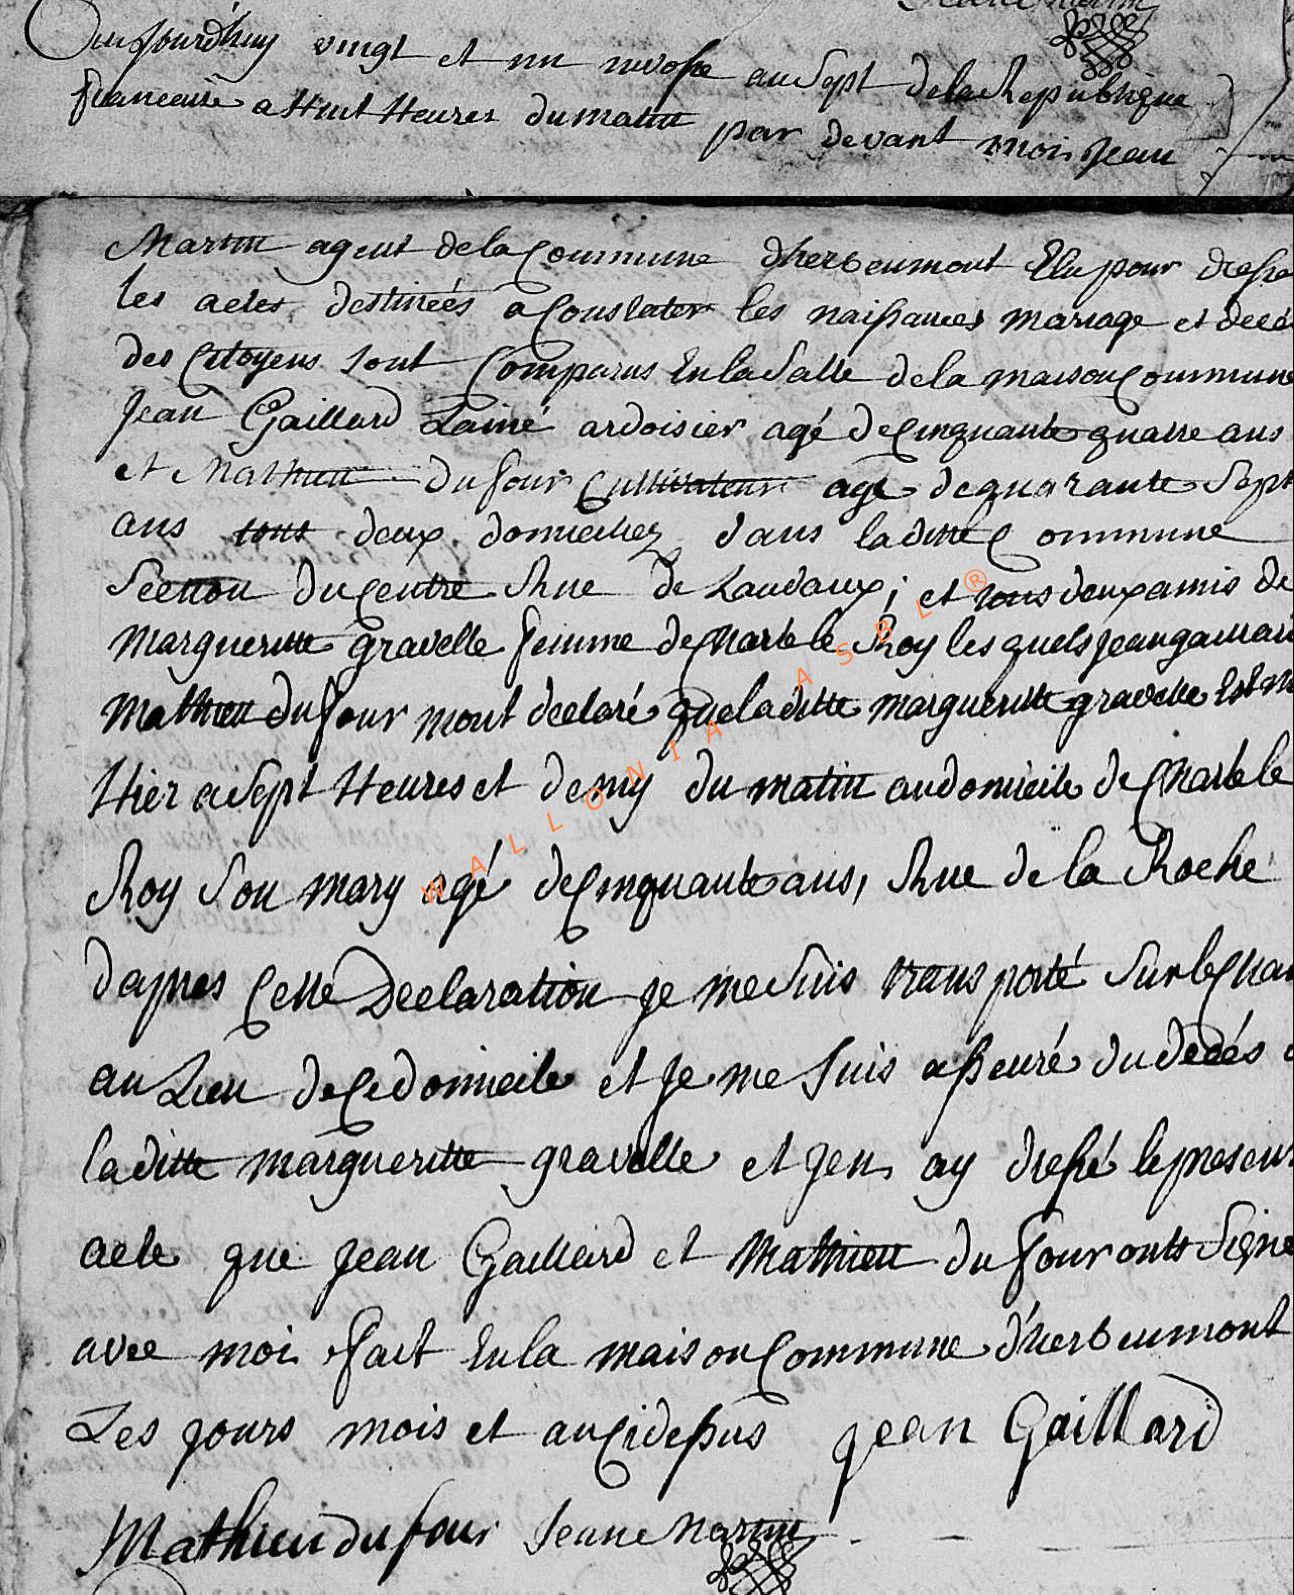 Jeane Martin
Aujourdhuy vingt et un nivose an Sept de la Republique
francaise a Huit Heures du matin par devant moi Jean
Martin agent de la Commune d'herbeumont Elu pour dresse
les actes destineés a Constater les naissances mariage et decé
des Citoyens sont Comparus En la Salle de la maison Commune
Jean Gaillard Lainé ardoisier agé de Cinquante quatre ans
et Mathieu du four Cultivateur agé de quarante Sept
ans tous deux domiciliez dans laditte Commune
Section du Centre Rue de Laudaux; et tous deux amis de
Margueritte gravelle femme de Charle le Roy les quels jean gaillard
Mathieu du four mont declaré que laditte margueritte gravelle Est m
Hier a Sept Heures et demy du matin au domicile de Charle le
Roy Son mary agé de Cinquante ans, Rue de la Roche
dapres Cette Declaration je me Suis transporté Sur le Cha
au Lieu de Ce domicile et Je me Suis asseuré du decés
laditte margueritte gravelle et jen ay dressé le presen
acte que jean Gaillard et Mathieu du four onts Signe
avec moi fait En la maison Commune d'herbeumont
Les jours mois et an Cidessus jean Gaillard
Mathieu du four Jeane Martin
WALLONIA ASBL ®